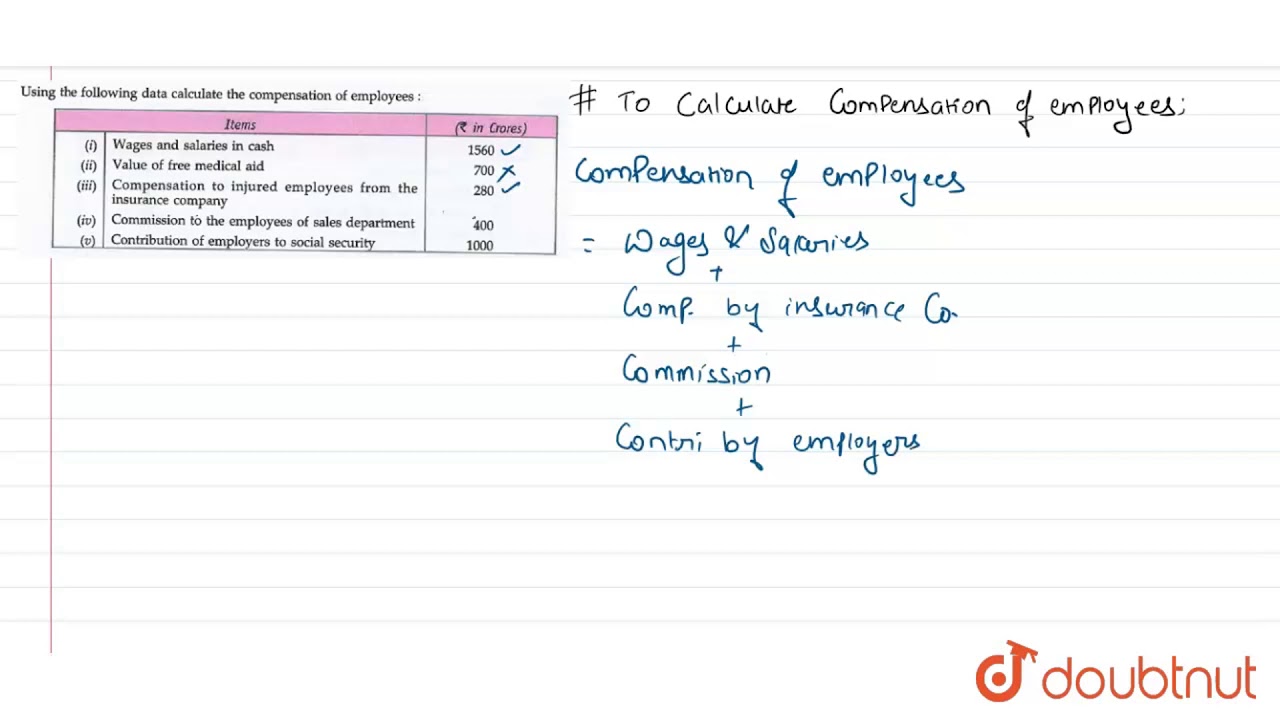 Using the following data calculate the compensation of employees :
Items (₹ in Crores)
(i) Wages and salaries in cash 1560 ✓
(ii) Value of free medical aid 700 ✗
(iii) Compensation to injured employees from the 280 ✓
insurance company
(iv) Commission to the employees of sales department 400
(v) Contribution of employers to social security 1000
# To Calculate Compensation of employees;
Compensation of employees
= Wages & Salaries
+
Comp. by insurance Co.
+
Commission
+
Contri by employers
doubtnut